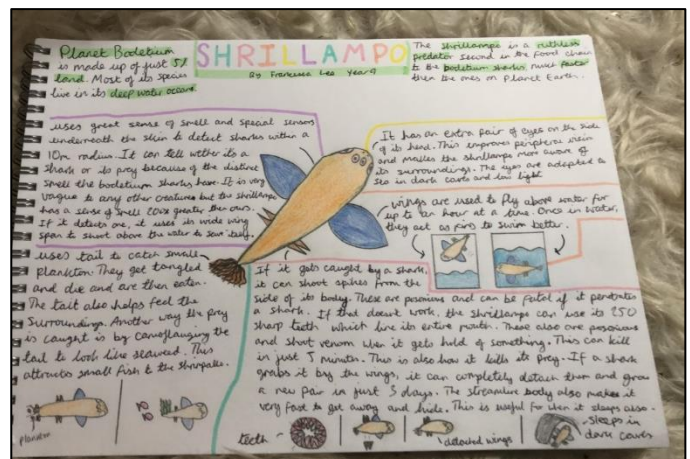 Planet Bodetium
is made up of just 5%
land. Most of its species
live in its deep water oceans.
SHRILLAMPO
By Francesca Lee Year 9
The shrillampo is a ruthless
predator second in the food chain
to the bodetium sharks much faster
then the ones on Planet Earth.
uses great sense of smell and special sensors
underneath the skin to detect sharks within a
10m radius. It can tell wether its a
shark or its prey because of the distinct
smell the bodetium sharks have. It is very
vague to any other creatures but the shrillampo
has a sense of smell 20x greater then ours.
If it detects one, it uses its wide wing
span to shoot above the water to save itself.
It has an extra pair of eyes on the side
of its head. This improves peripheral
and makes the shrillampo more aware of
its surroundings. The eyes are adapted to
see in dark caves and low light
wings are used to fly above water for
up to an hour at a time. Once in water,
they act as fins to swim better.
uses tail to catch small
plankton. They get tangled
and die and are then eaten.
The tail also helps feel the
surroundings. Another way the prey
is caught is by camoflauging the
tail to look like seaweed. This
attracts small fish to the
If it gets caught by a shark,
it can shoot spikes from the
side of its body. These are posionous and can be fatal if it penetrates
a shark. If that doesnt work, the shrillampo can use its 250
sharp teeth which line its entire mouth. These also are posionous
and shoot venom when it gets hold of something. This can kill
in just 5 minutes. This is also how it kills its prey. If a shark
grabs it by the wings, it can completely detach them and grow
a new pair in just 3 days. The streamline body also makes it
very fast to get away and hide. This is useful for when it sleeps also.
plankton
teeth
detached wings
Sleeps in
dark caves